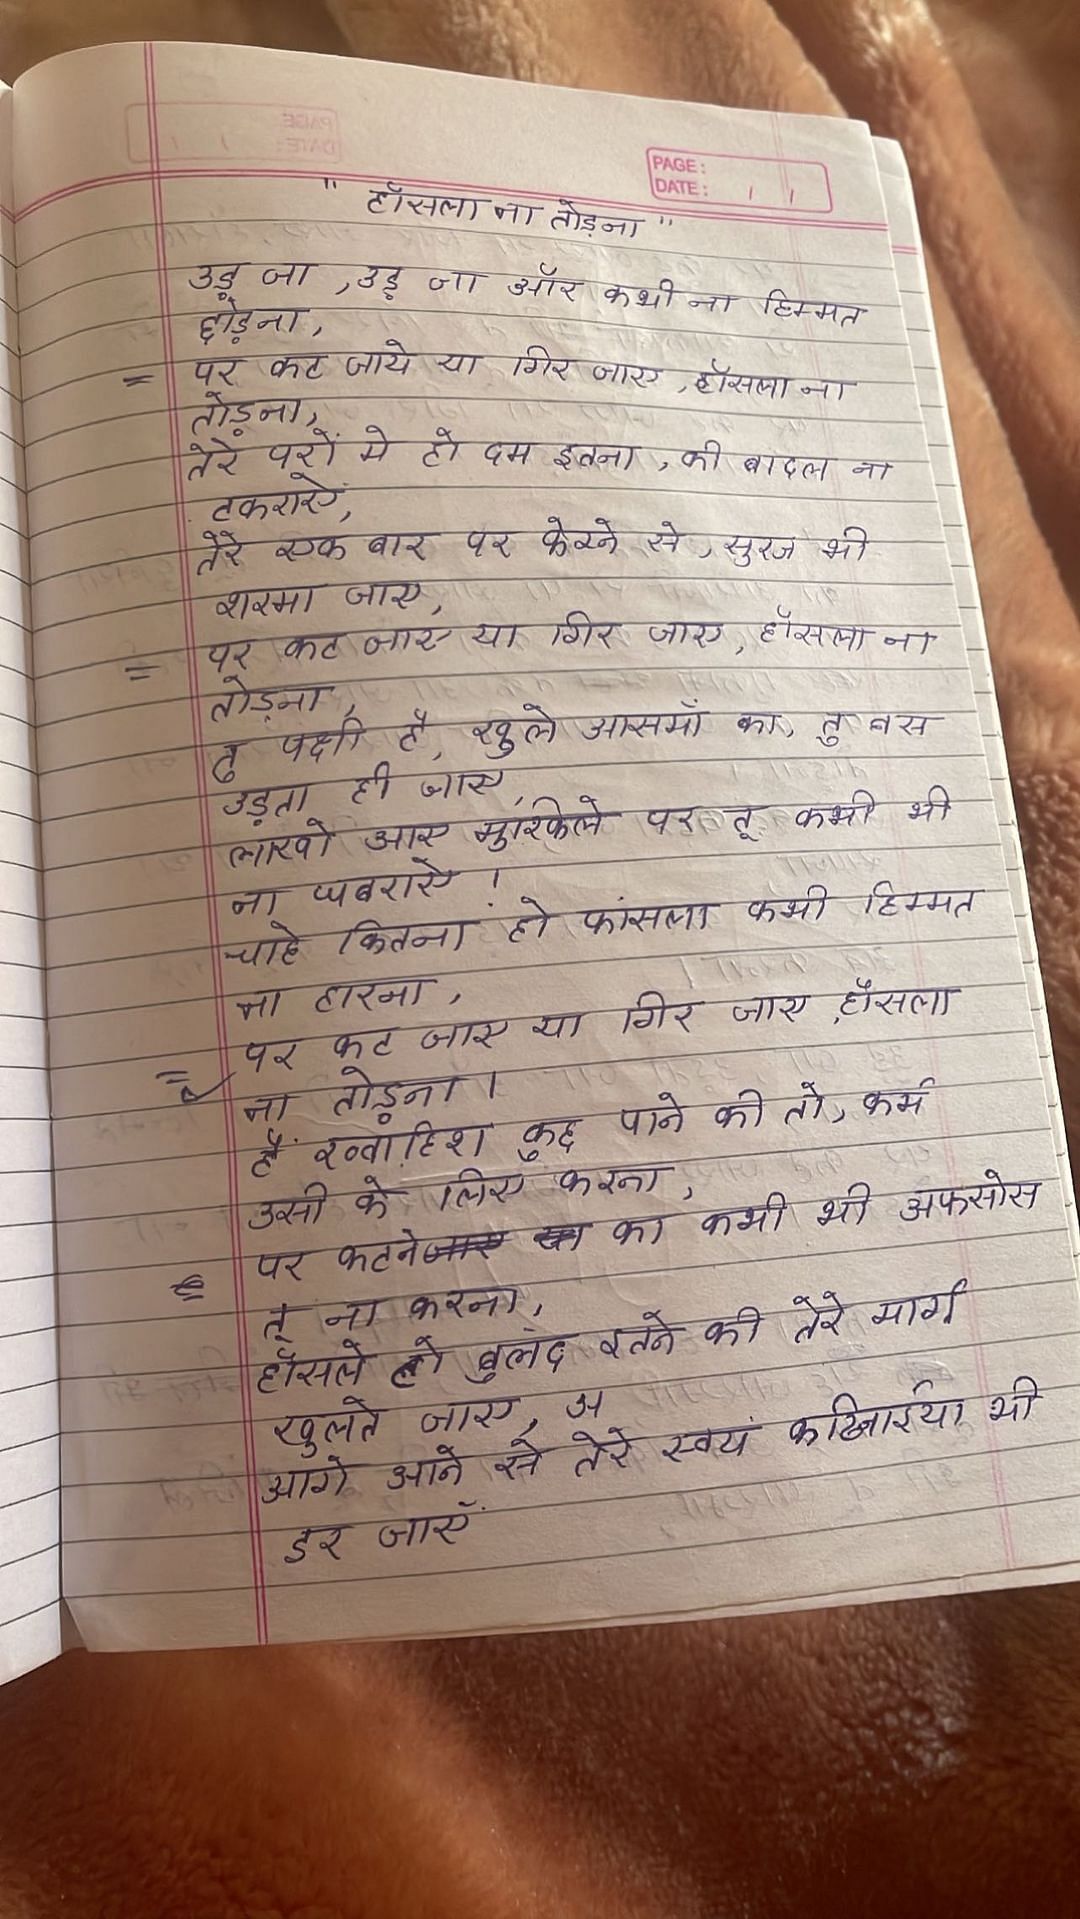 PAGE:
DATE:
" हौंसला ना तोड़ना "
उड़ जा , उड़ जा और कभी ना हिम्मत
छोड़ना,
= पर कट जाये या गिर जाए , हौंसला ना
तोड़ना,
तेरे परों मे हो दम इतना , की बादल ना
टकराऐं,
तेरे एक बार पर फेरने से, सुरज भी
शरमा जाए,
= पर कट जाए या गिर जाए, हौंसला ना
तोड़ना,
तु पक्षी है, खुले आसमाँ का, तु बस
उड़ता ही जाए,
लाखो आए मुश्किले पर तू कभी भी
ना घबराऐ !
चाहे कितना हो फांसला कभी हिम्मत
ना हारना,
= पर कट जाए या गिर जाए ,हौंसला
ना तोड़ना।
हैं ख्वाहिश कुछ पाने की तो, कर्म
उसी के लिए करना,
= पर कटने का कभी भी अफसोस
तू ना करना,
हौंसले हो बुलंद इतने की तेरे मार्ग
खुलते जाए, अ
आगे आने से तेरे स्वयं कठिनाईया भी
डर जाएँ